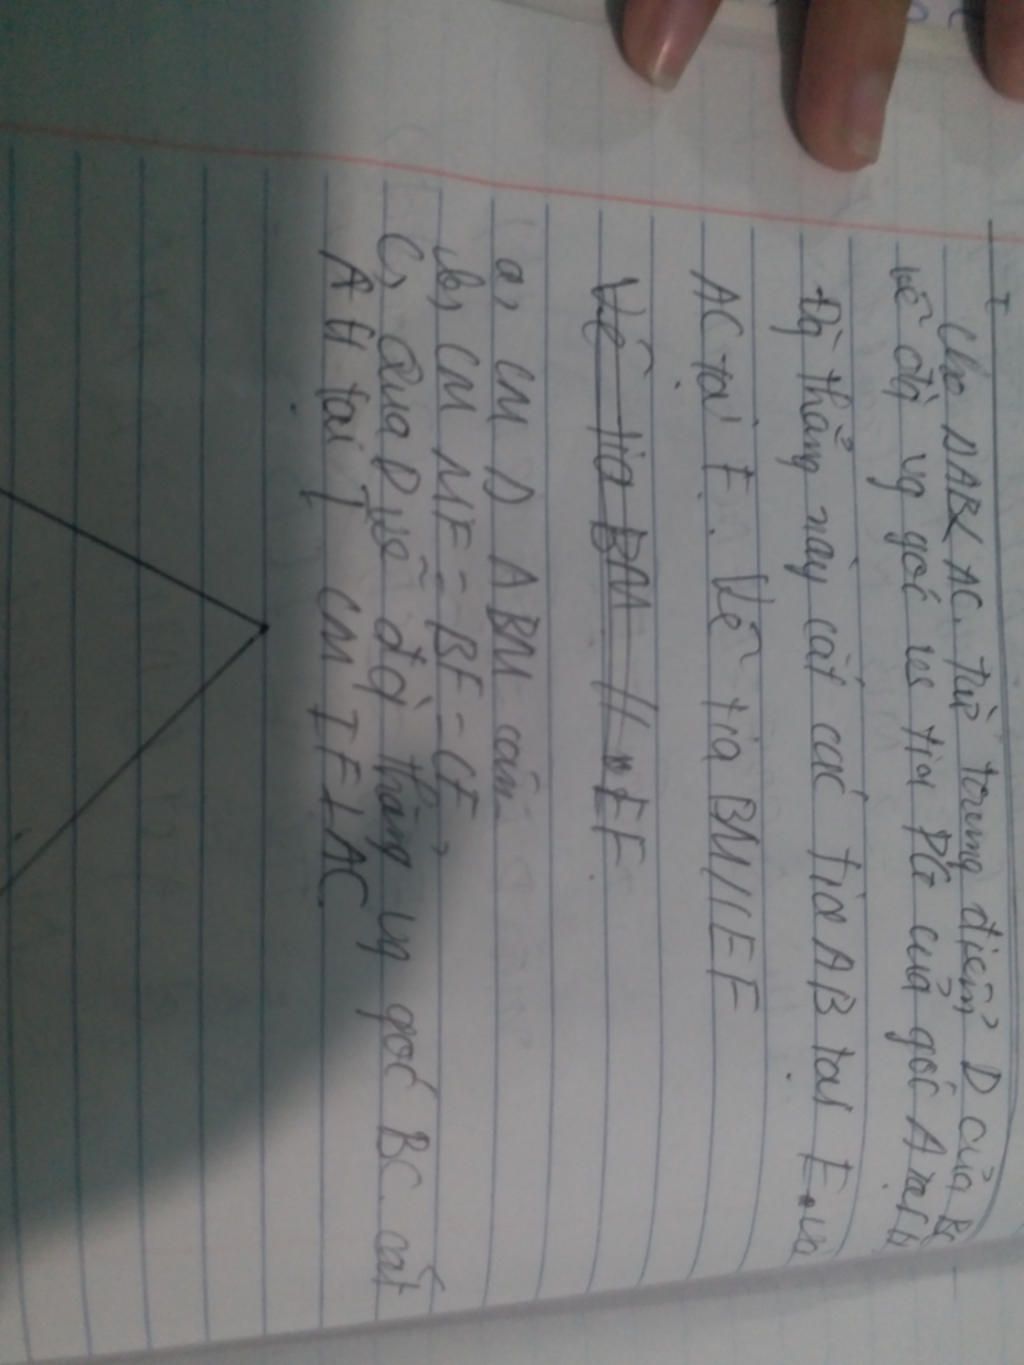 Cho ΔAB< AC. Từ trung điểm D của BC
vẽ đg vg góc vs tia PG của góc A tại H
đg thẳng này cắt các tia AB tại E và
AC tại F. Vẽ tia BM // EF
Vẽ tia BM // EF
a, CM Δ ABM cân
b, CM MF = BE = CF
C, Qua D vẽ đg thẳng vg góc BC cắt
AH tại I CM IF ⊥ AC